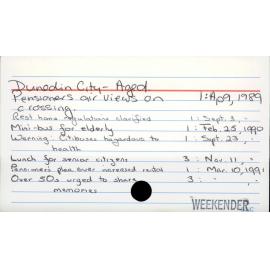 Dunedin City - Aged
Pensioners air views on 1: Ap 9, 1989
crossing.
Rest home regulations clarified 1: Sept. 3, "
Mini-bus for elderly 1: Feb. 25, 1990
Warning: Citibuses hazardous to 1: Sept. 23, "
health
Lunch for senior citizens 3: Nov. 11, "
Pensioners plea over increased rental 1: Mar. 10, 1991
Over 50s urged to share 3: " "
memories
WEEKENDER